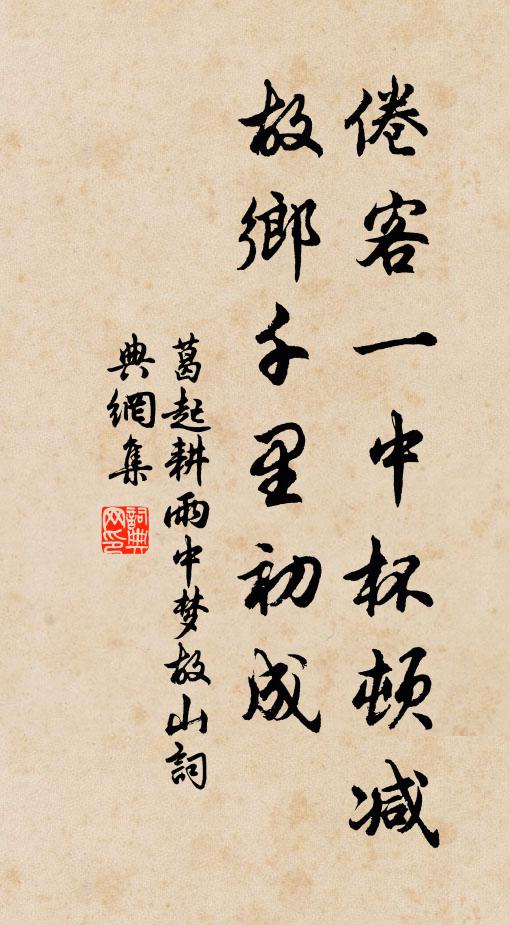 倦客一中杯頓减
故鄉千里初成
葛起耕雨中梦故山詞
典網集
詞典
网印